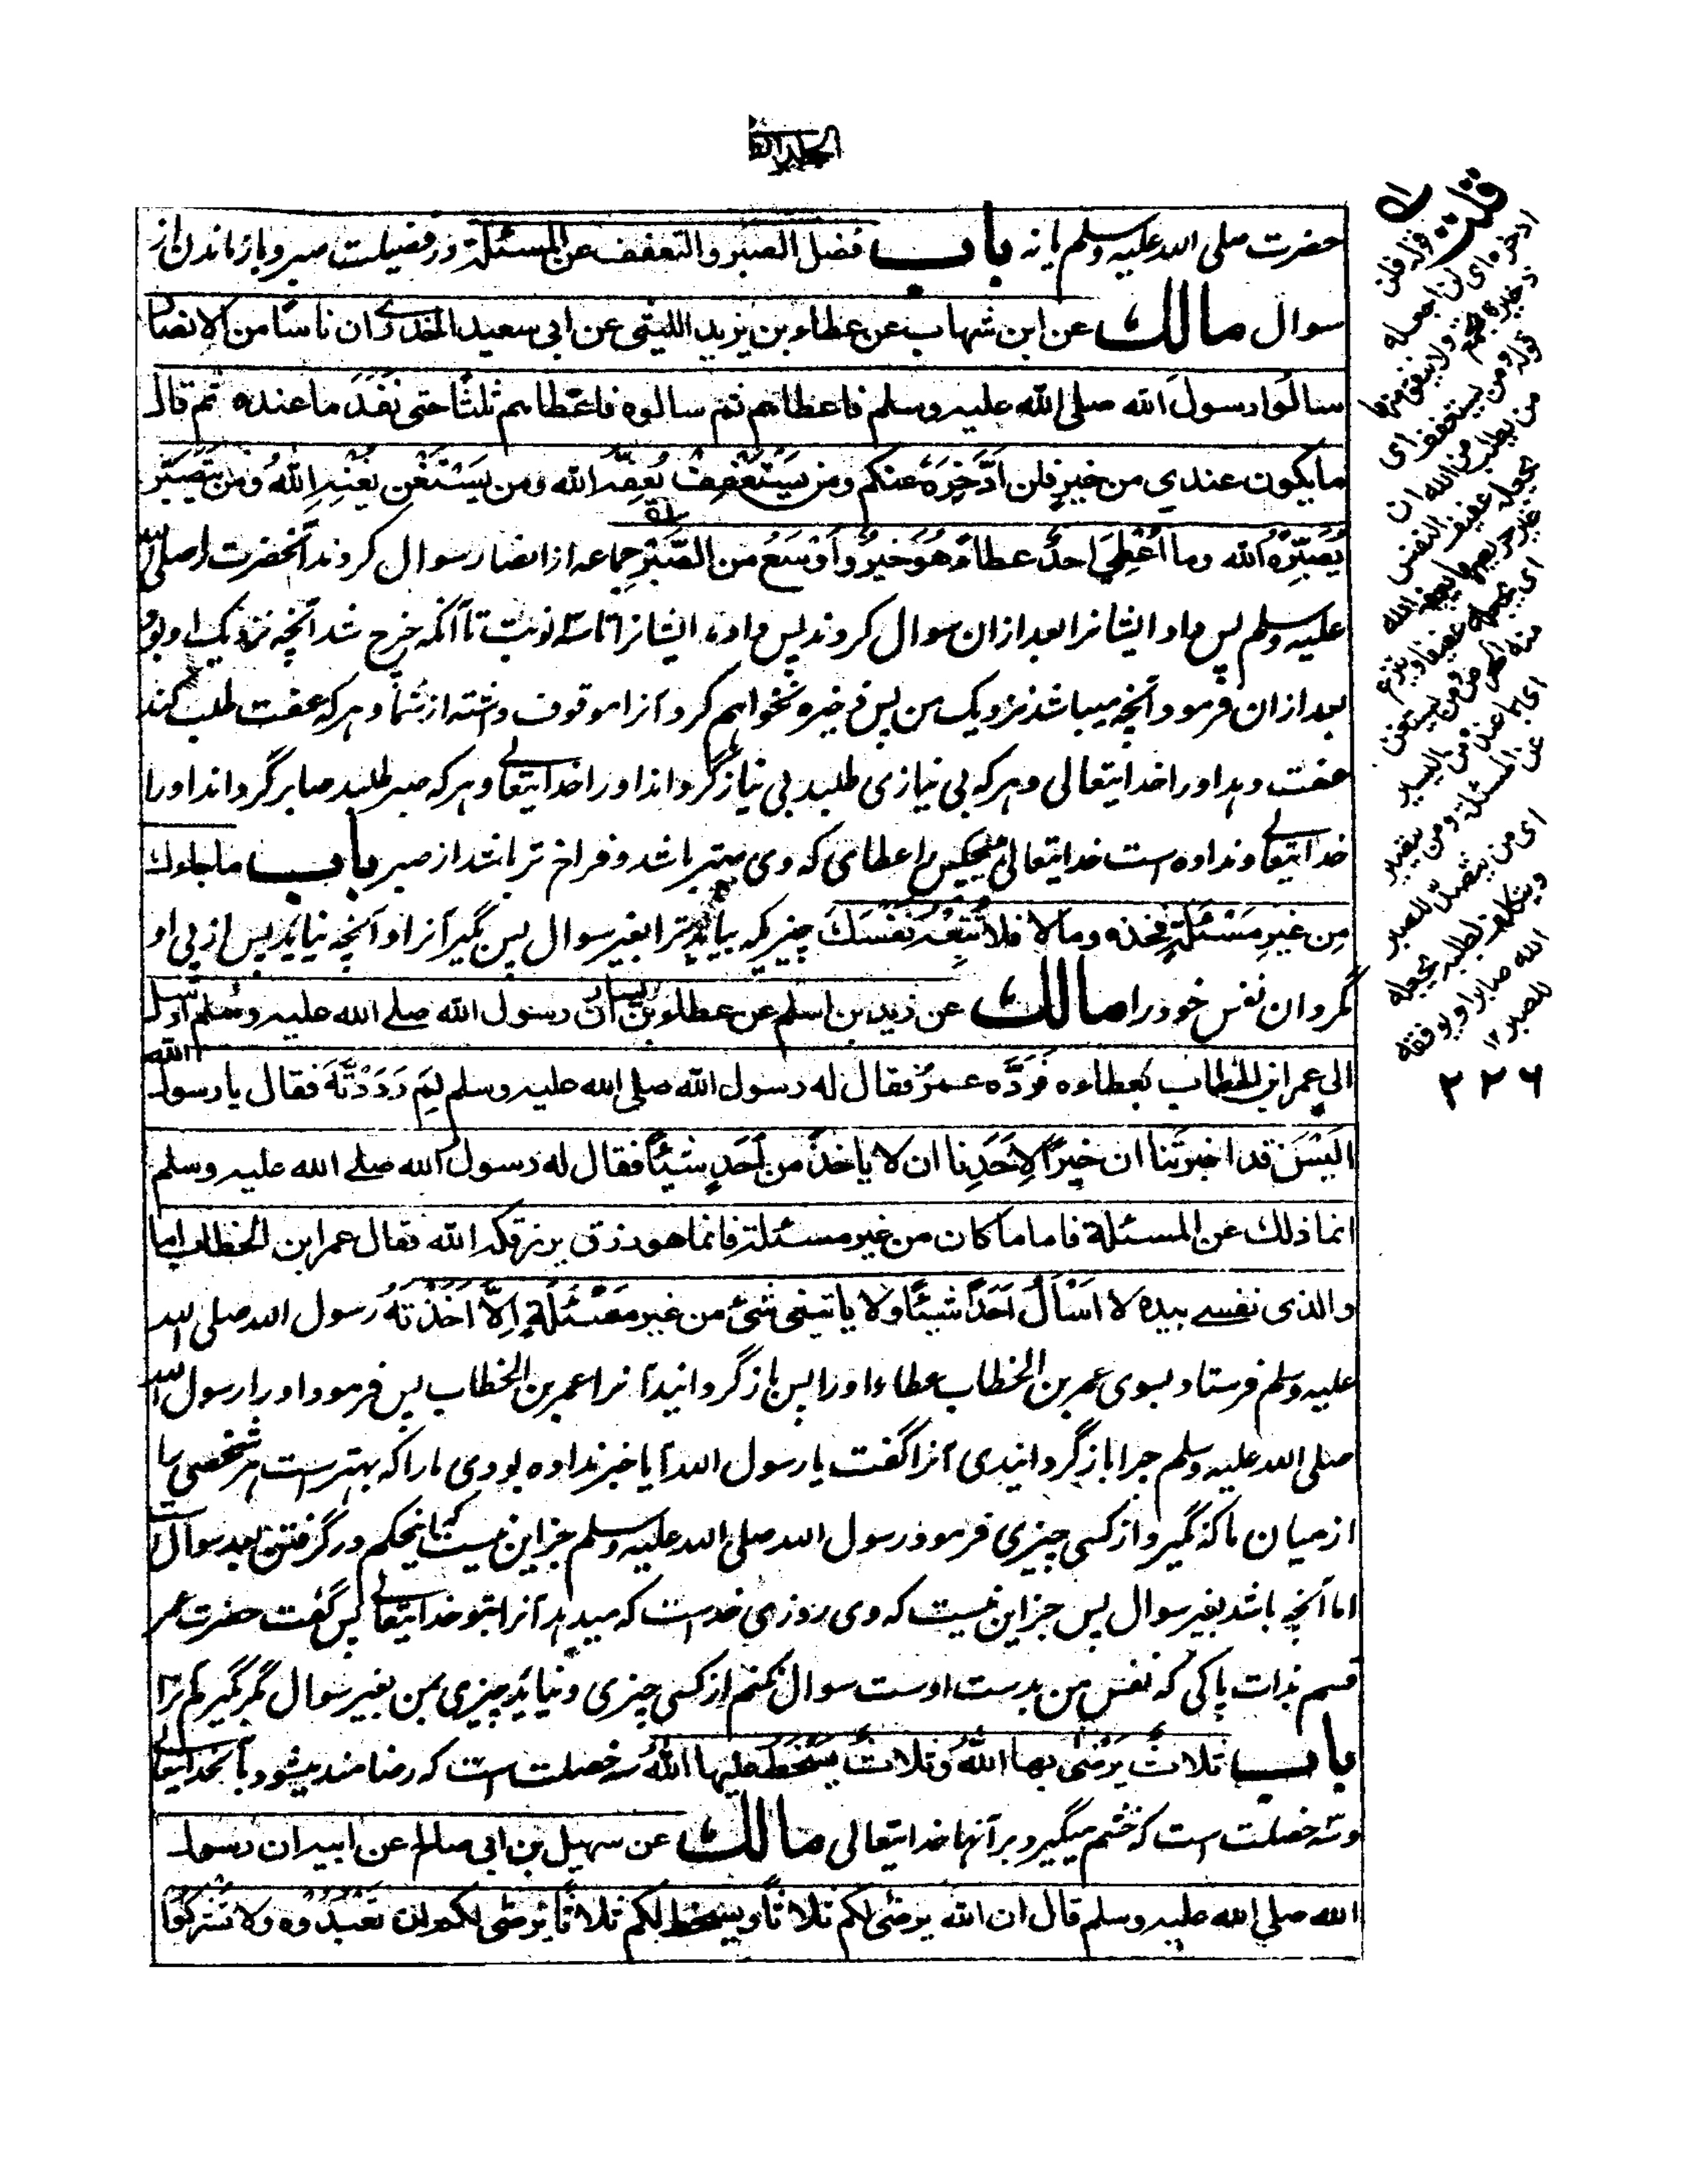 حضرت صلی الله علیه وسلم یا نه باب فضل الصبر والتعفف عن المسئلة در فضیلت صبر و باز ماندن از
سوال مالك عن ابن شهاب عن عطاء بن يزيد الليثي عن ابي سعيد الخدري ان ناسًا من الانصار
سالُوا رسولَ الله صلى الله عليه وسلم فاعطاهم ثم سالوه فاعطاهم ثلثًا حتى نَفَدَ ما عنده ثم قال
ما يكون عندي من خيرٍ فلن اَدَّخِرَهُ عنكم ومن يَسْتَعْفِفْ يُعِفّهُ الله ومن يَسْتَغْنِ يُغْنِهِ اللهُ ومن يَتَصَبَّر
يُصَبِّرْهُ الله وما اُعْطِيَ احدٌ عطاءً هُوَ خيرٌ وأَوْسَعُ من الصَّبْرِ جماعه از انصار سوال کردند آنحضرت را صلی الله
علیه وسلم پس داد ایشانرا بعد ازان سوال کردند پس داد ایشانرا تا سه نوبت تا آنکه خرج شد آنچه نزدیک او بود
بعد ازان فرمود آنچه میباشد نزدیک من پس ذخیره نخواهم کرد آنرا موقوف داشته از شما و هر که عفت طلب کند
عفت دهد او را خدایتعالی و هر که بی نیازی طلبد بی نیاز گرداند او را خدایتعالی و هر که صبر طلبد صابر گرداند او را
خدایتعالی و نداده است خدایتعالی هیچکس را عطای که وی بهتر باشد و فراخ تر باشد از صبر باب ما جاءك
مِن غيرِ مَسْئَلَةٍ فخذه وما لا فلا تُتْبِعْهُ نَفْسَكَ چیزیکه بیاید ترا بغیر سوال پس بگیر آنرا و آنچه نیاید پس از پی او
مگردان نفس خود را مالك عن زيد بن اسلم عن عطاء بن يسار ان رسول الله صلى الله عليه وسلم ارسل
الى عمر ابن الخطاب بعطاء فَرَدَّه عمرُ فقال له رسول الله صلى الله عليه وسلم لِمَ رَدَدْتَّهُ فقال يا رسول الله
اَلَيْسَ قد اخبرتَنا ان خيرًا لِاَحَدِنا ان لا ياخذَ من اَحَدٍ شيئًا فقال له رسول الله صلى الله عليه وسلم
انما ذلك عن المسئلة فاما ما كان من غير مسئلة فانما هو رزق يرزقكه الله فقال عمر ابن الخطاب اما
والذى نفسى بيده لا اَسْأَلُ اَحَدًا شيئًا ولا ياتيني شئ من غير مَسْئَلَةٍ اِلاَّ اَخَذْتُهُ رسول الله صلی الله
علیه وسلم فرستاد بسوی عمر بن الخطاب عطاء او را پس باز گردانید آنرا عمر بن الخطاب پس فرمود او را رسول الله
صلی الله علیه وسلم چرا باز گردانیدی آنرا گفت یا رسول الله آیا خبر نداده بودی ما را که بهتر است هر شخصی را
از میان ما که نگیرد از کسی چیزی فرمود رسول الله صلی الله علیه وسلم جز این نیست که اینحکم در گرفتن بعد سوال است
اما آنچه باشد بغیر سوال پس جز این نیست که وی روزی خداست که میدهد آنرا بتو خدایتعالی پس گفت حضرت عمر
قسم بذات پاکی که نفس من بدست اوست سوال نکنم از کسی چیزی و نیاید چیزی بمن بغیر سوال مگر گیرم آنرا
باب ثلاثٌ يَرْضٰى بها اللهُ وثلاثٌ يَسْخَطُ عليها اللهُ سه خصلت است که رضامند میشود بآن خدایتعالی
و سه خصلت است که خشم میگیرد بر آنها خدایتعالی مالك عن سهيل بن ابي صالح عن ابيه ان رسول
الله صلى الله عليه وسلم قال ان الله يرضى لكم ثلاثًا ويسخط لكم ثلاثًا يرضى لكم ان تَعْبُدُوه ولا تُشْرِكُوا
قوله فلن
ادخره اى لن اجعله
ذخيرة
قوله ومن يستعفف اى
من يطلب من الله ان
يجعله عفيف النفس
عن المسئلة ومن يتصبر
الله صابرا ويوفقه
للصبر ۱۲
۲۲۶